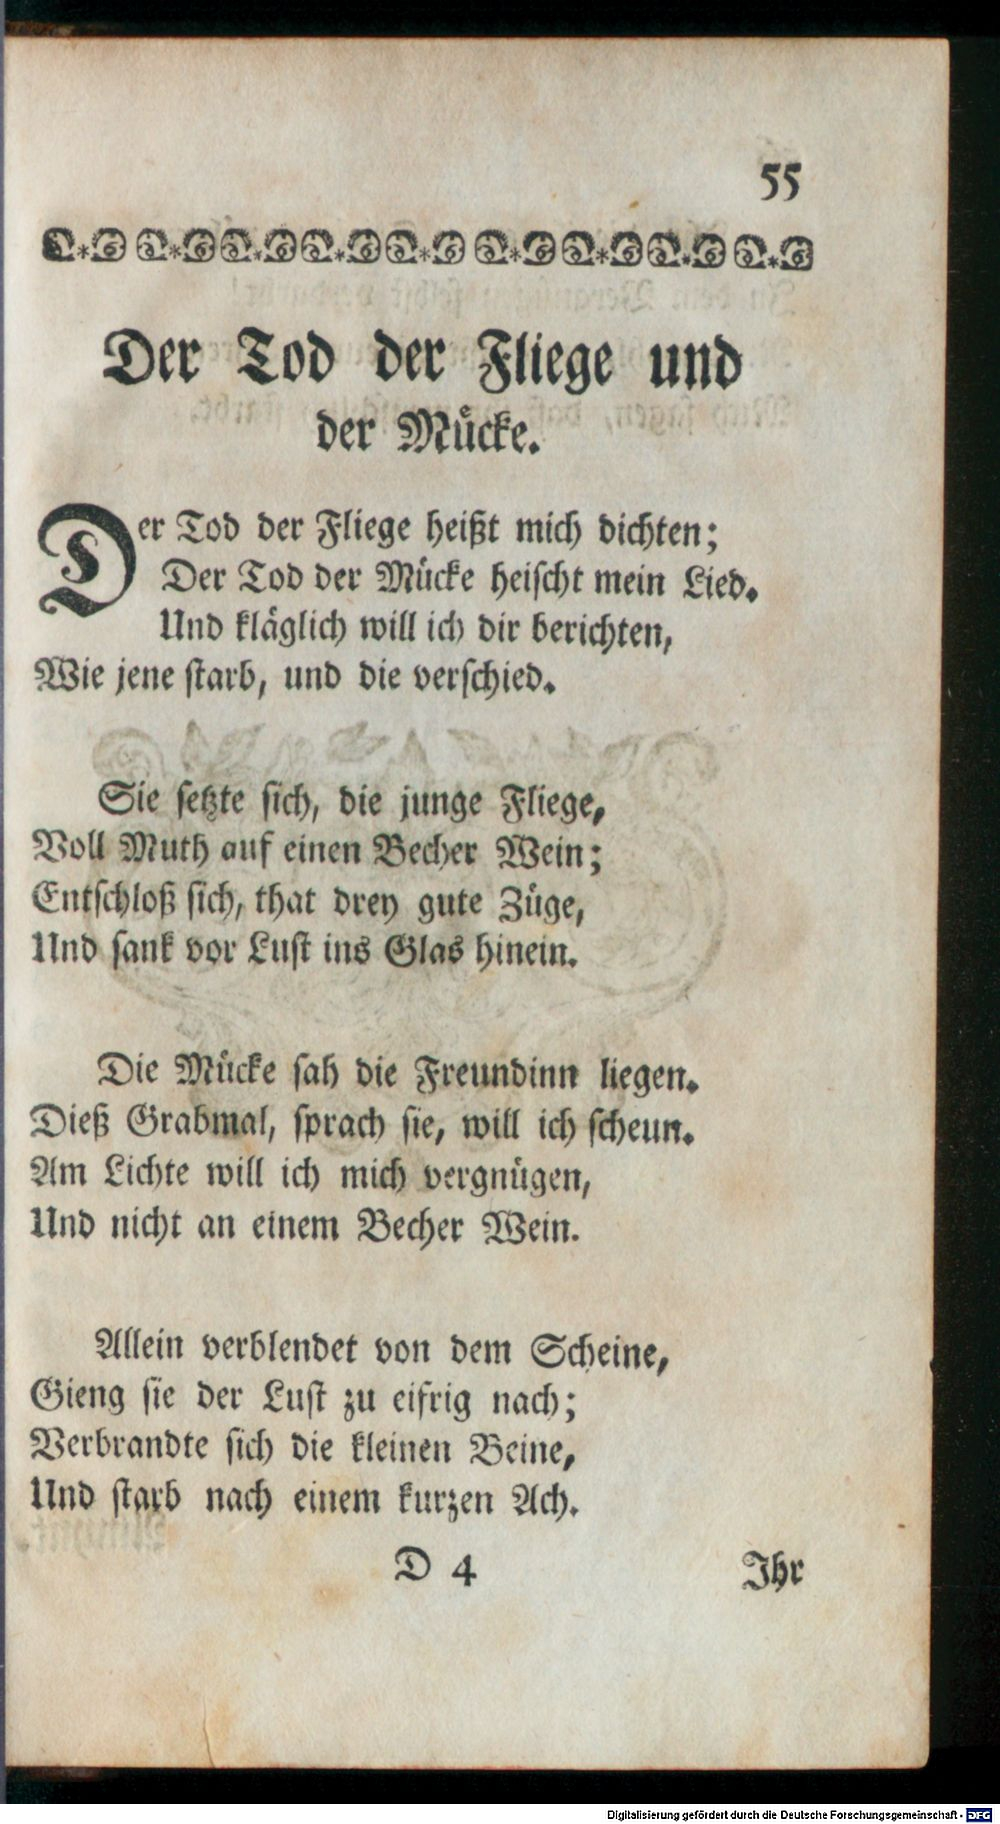 55
Der Tod der Fliege und
der Mücke.
Der Tod der Fliege heißt mich dichten;
Der Tod der Mücke heischt mein Lied.
Und kläglich will ich dir berichten,
Wie jene starb, und die verschied.
Sie setzte sich, die junge Fliege,
Voll Muth auf einen Becher Wein;
Entschloß sich, that drey gute Züge,
Und sank vor Lust ins Glas hinein.
Die Mücke sah die Freundinn liegen.
Dieß Grabmal, sprach sie, will ich scheun.
Am Lichte will ich mich vergnügen,
Und nicht an einem Becher Wein.
Allein verblendet von dem Scheine,
Gieng sie der Lust zu eifrig nach;
Verbrandte sich die kleinen Beine,
Und starb nach einem kurzen Ach.
D 4 Ihr
Digitalisierung gefördert durch die Deutsche Forschungsgemeinschaft - DFG